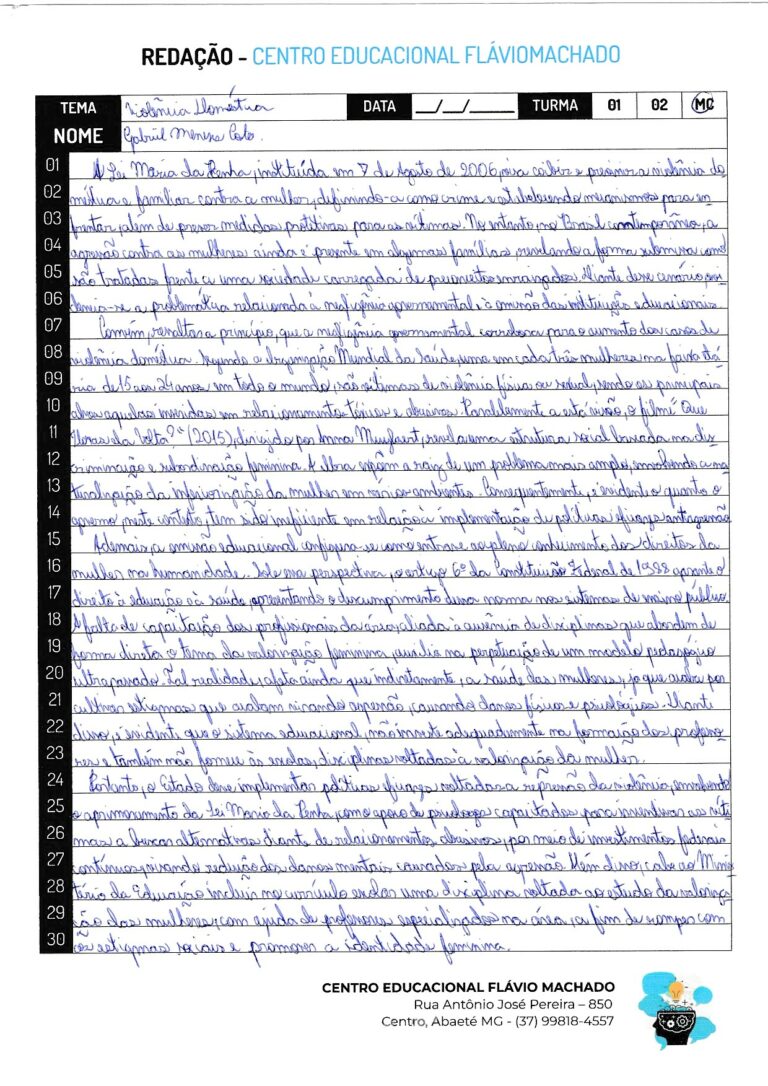 REDAÇÃO - CENTRO EDUCACIONAL FLÁVIOMACHADO
TEMA Violência Doméstica DATA __/__/____ TURMA 01 02 MC
NOME Gabriel Menezes
01 A Lei Maria da Penha, instituída em 7 de Agosto de 2006, visa coibir e prevenir a violência do
02 méstica e familiar contra a mulher, definindo-a como crime e estabelecendo mecanismos para en
03 frentar, além de prever medidas protetivas para as vítimas. No entanto, no Brasil contemporâneo, a
04 agressão contra as mulheres ainda é presente em algumas famílias, revelando a forma submissa como
05 são tratadas frente a uma sociedade carregada de preconceitos enraizados. Diante desse cenário, evi
06 dencia-se a problemática relacionada à negligência governamental e à omissão das instituições educacionais.
07 Convém, ressaltar a princípio, que a negligência governamental corrobora para o aumento dos casos de
08 violência doméstica. Segundo a Organização Mundial da Saúde, uma em cada três mulheres na faixa etá
09 ria de 15 aos 24 anos em todo o mundo, são vítimas de violência física ou sexual, sendo os principais
10 alvos aquelas inseridas em relacionamentos tóxicos e abusivos. Paralelamente a esta visão, o filme "Que
11 Horas ela Volta?" (2015), dirigido por Anna Muylaert, revela uma estrutura social baseada na dis
12 criminação e subordinação feminina. A obra expõem a raiz de um problema mais amplo, envolvendo a na
13 turalização da inferiorização da mulher em vários ambientes. Consequentemente, é evidente o quanto o
14 governo, neste contexto, tem sido ineficiente em relação à implementação de políticas eficazes antiagressão.
15 Ademais, a omissão educacional configura-se como entrave ao pleno conhecimento dos direitos da
16 mulher na humanidade. Sob essa perspectiva, o artigo 6º da Constituição Federal de 1988 garante o
17 direito à educação e à saúde, apresentando o descumprimento dessa norma nos sistemas de ensino público.
18 A falta de capacitação dos profissionais da área, aliada à ausência de disciplinas que abordem de
19 forma direta o tema da valorização feminina, auxilia na perpetuação de um modelo pedagógico
20 ultrapassado. Tal realidade, afeta ainda que indiretamente, a saúde das mulheres, já que acaba por
21 cultivar estigmas que acabam virando agressão, causando danos físicos e psicológicos. Diante
22 disso, é evidente que o sistema educacional, não investe adequadamente na formação dos professo
23 res e também não fornece às escolas, disciplinas voltadas à valorização da mulher.
24 Portanto, o Estado deve implementar políticas eficazes voltadas a repressão da violência, envolvendo
25 o aprimoramento da Lei Maria da Penha, com o apoio de psicólogos capacitados para incentivar as víti
26 mas a buscar alternativas diante de relacionamentos abusivos, por meio de investimentos federais
27 contínuos, visando redução dos danos mentais causados pela agressão. Além disso, cabe ao Minis
28 tério da Educação incluir no currículo escolar uma disciplina voltada ao estudo da valoriza
29 ção das mulheres, com ajuda de professores especializados na área, a fim de romper com
30 os estigmas sociais e promover a identidade feminina.
CENTRO EDUCACIONAL FLÁVIO MACHADO
Rua Antônio José Pereira – 850
Centro, Abaeté MG - (37) 99818-4557